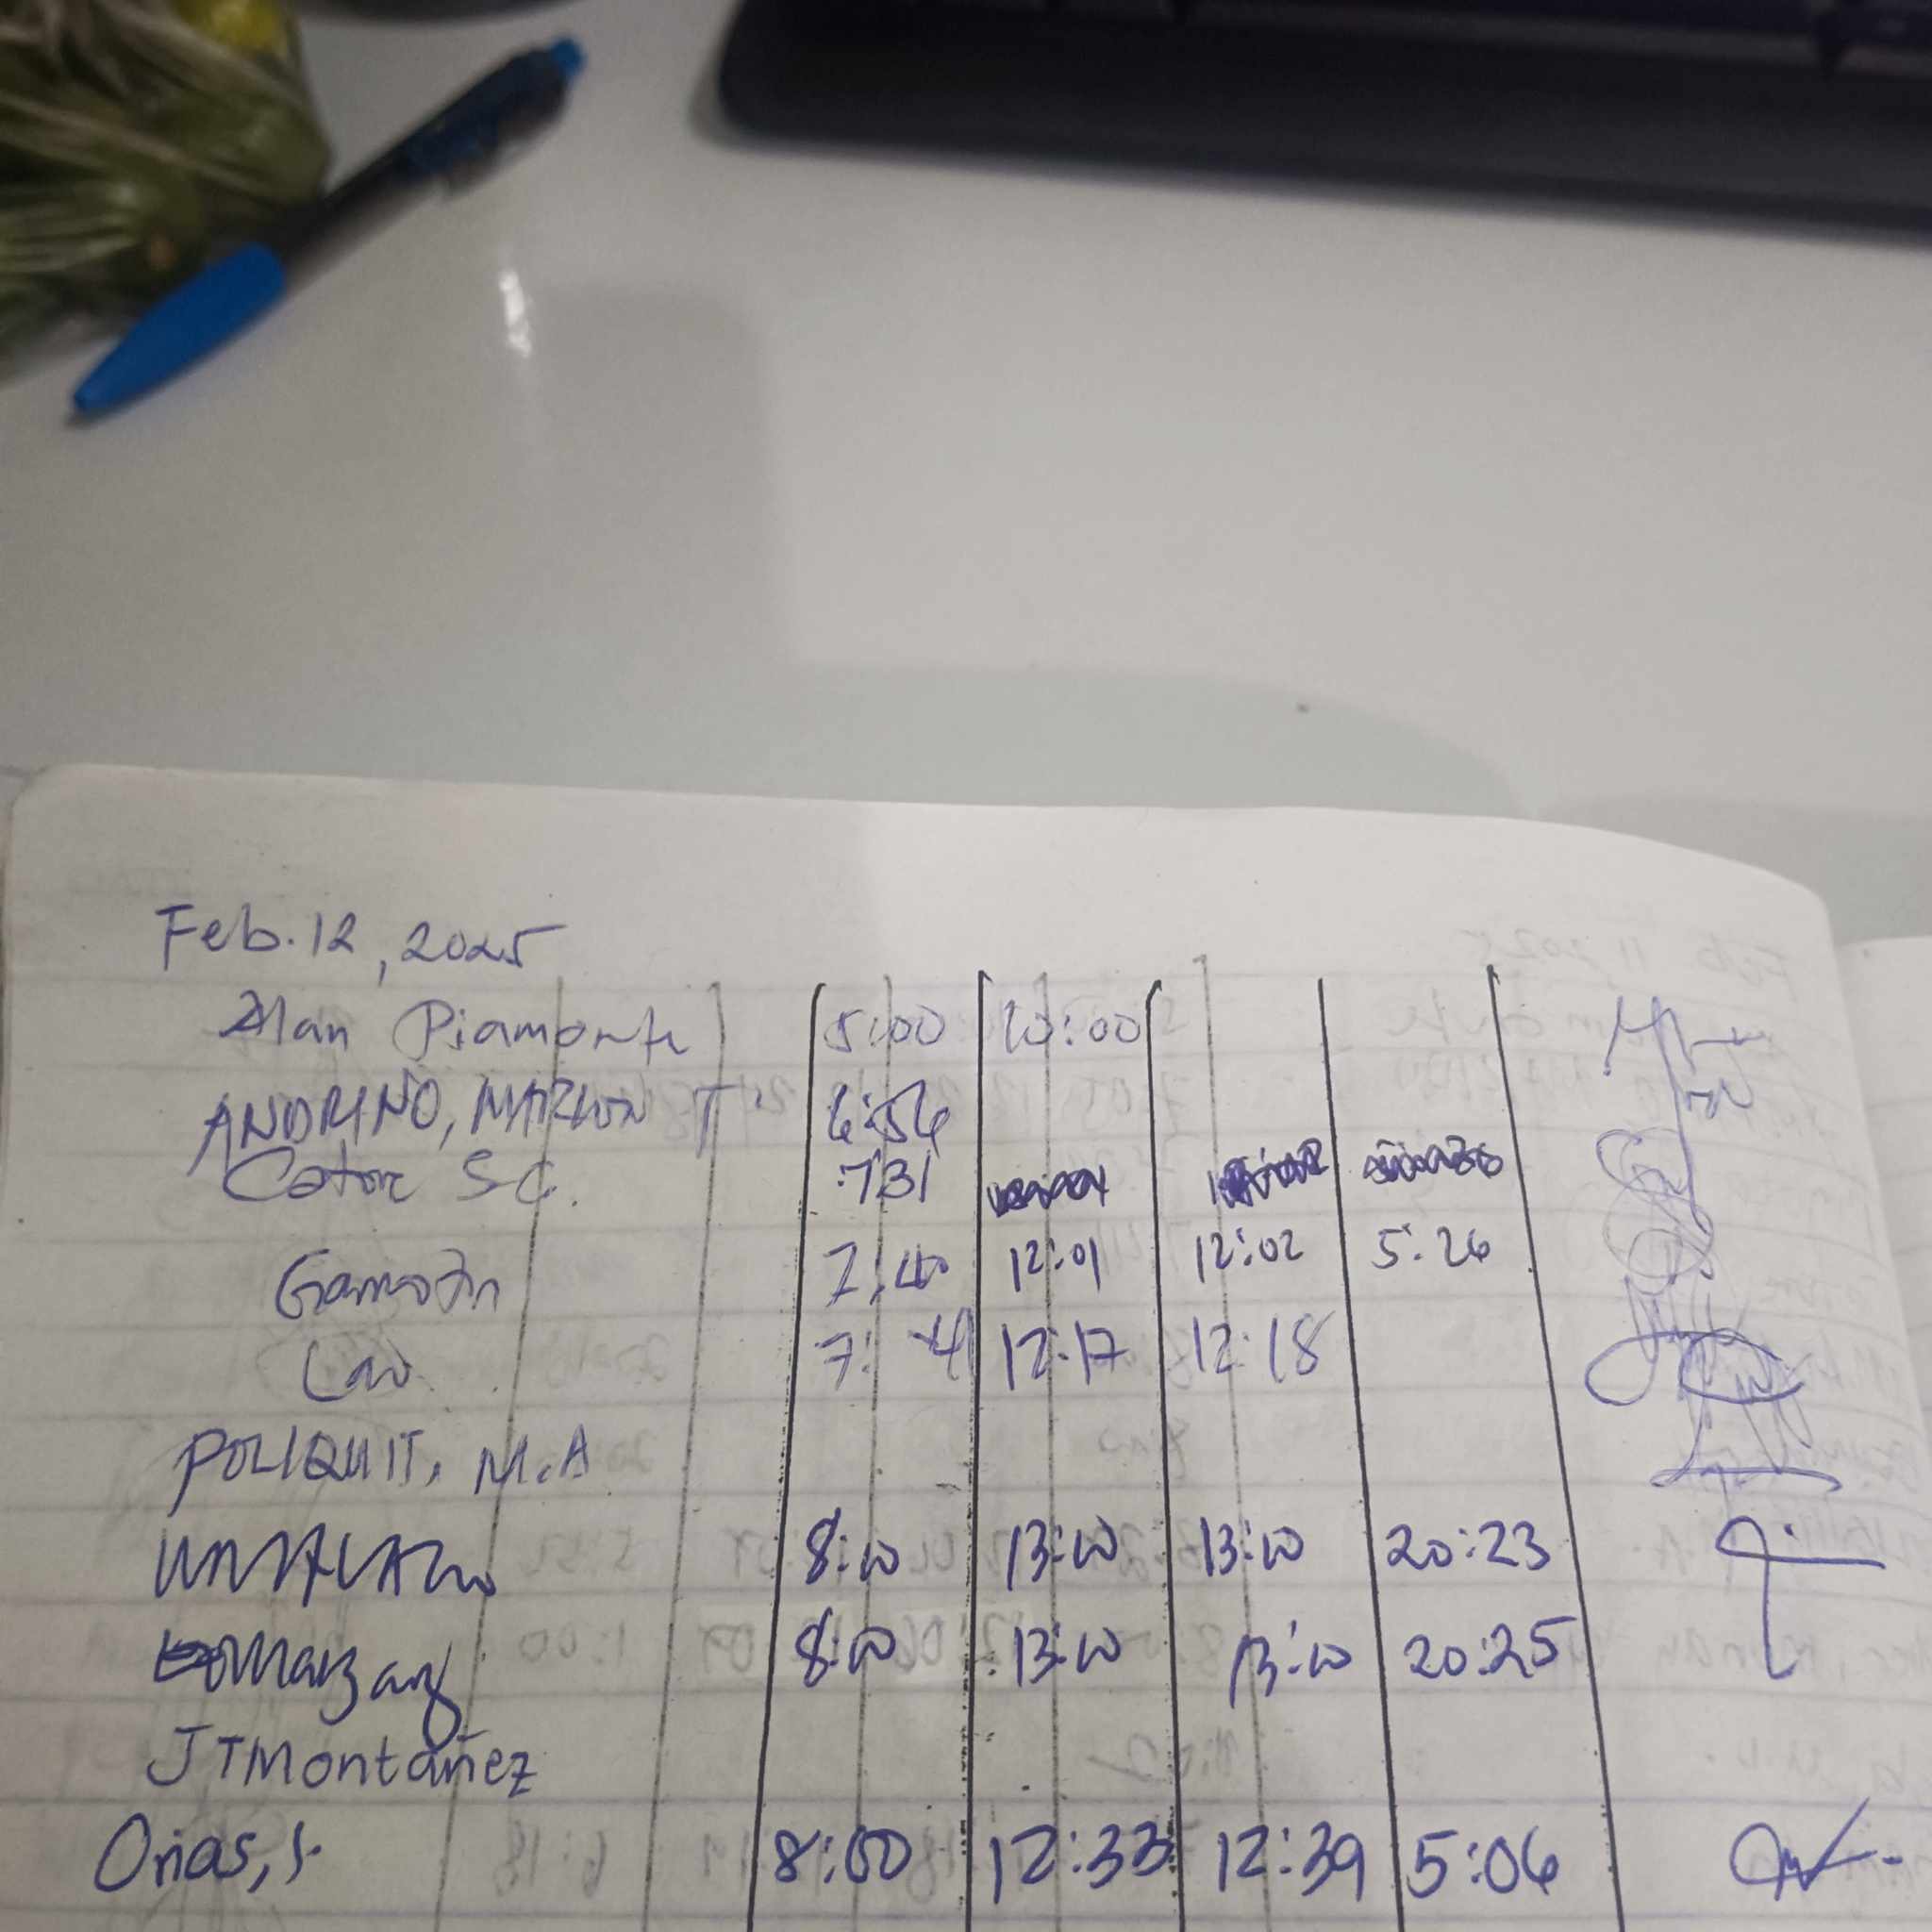 Feb. 12, 2025
Alan Piamonte 5:00 10:00
ANDRINO, MARLON T. 6:56
Catore S.C. :731
Gamotin 7:40 12:01 12:02 5:26
Lao 7:41 12:17 12:18
POLIQUIT, M.A
8:00 13:00 13:00 20:23
8:00 13:00 13:00 20:25
JTMontañez
Orias, J. 8:00 12:33 12:39 5:06